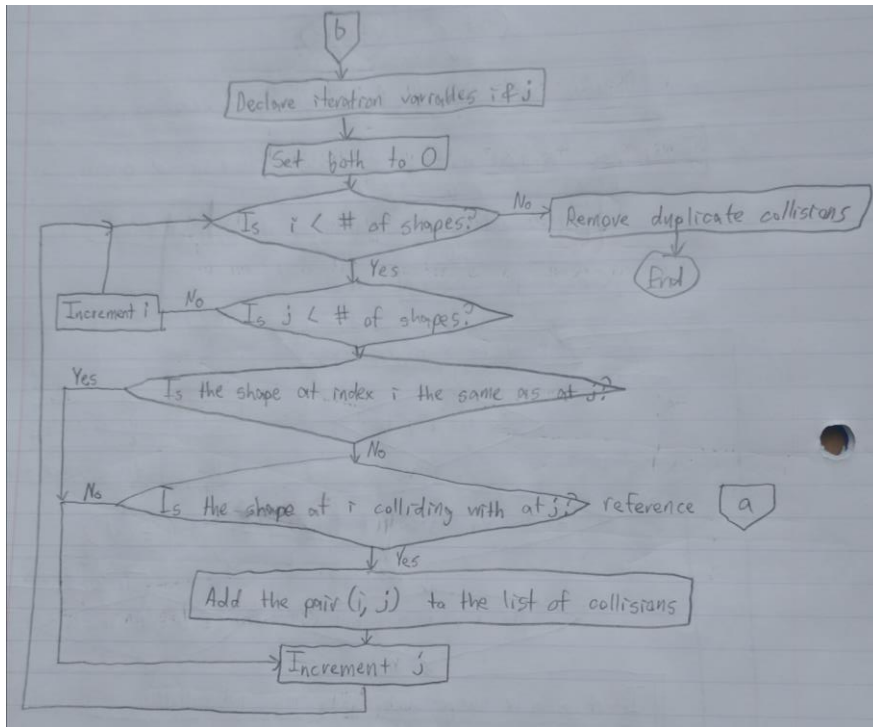 b
Declare iteration variables i & j
Set both to 0
Is i < # of shapes?
No
Remove duplicate collisions
End
Yes
Is j < # of shapes?
No
Increment i
Is the shape at index i the same as at j?
Yes
No
Is the shape at i colliding with at j?
No
reference
a
Yes
Add the pair (i, j) to the list of collisions
Increment j